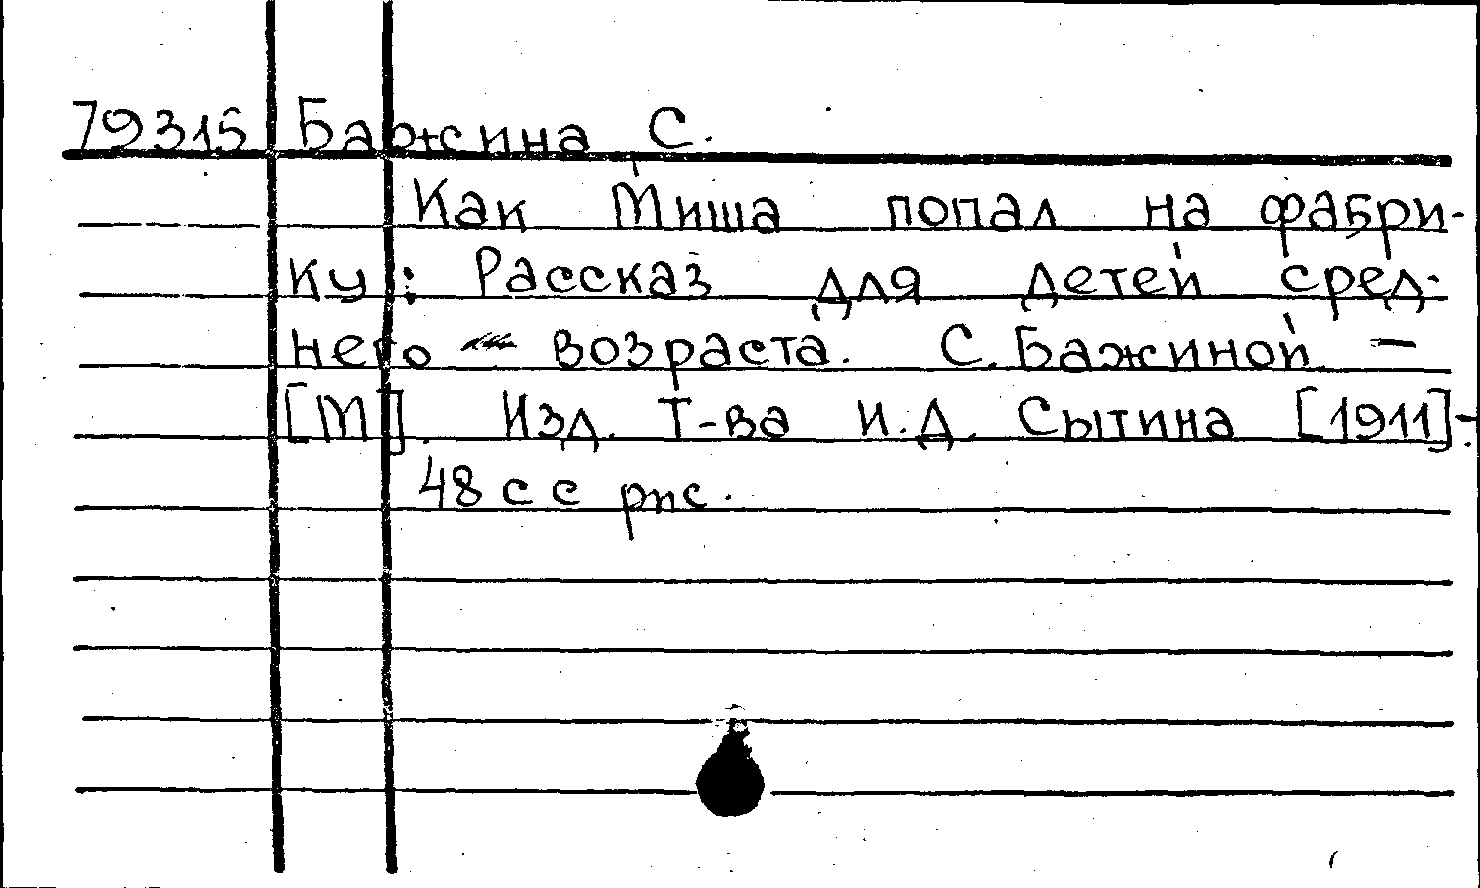 79315 Бажина С.
Как Миша попал на фабри-
ку: Рассказ для детей сред-
него возраста. С. Бажиной. –
[М]. Изд. Т-ва И.Д. Сытина [1911]-
48 с с рис.